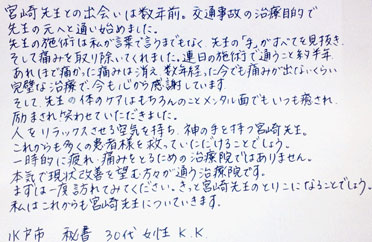 宮崎先生との出会いは数年前。交通事故の治療目的で
先生の元へと通い始めました。
先生の施術は私が言葉で言うまでもなく、先生の「手」がすべてを見抜き、
そして痛みを取り除いてくれました。連日の施術で通うこと約半年
あれほど痛かった痛みは消え、数年経った今でも痛みが出ないくらい
完璧な治療で、今も心から感謝しています。
そして、先生の体のケアはもちろんのことメンタル面でもいつも癒され、
励まされ笑わせていただきました。
人をリラックスさせる空気を持ち、神の手を持つ宮崎先生。
これからも多くの患者様を救っていただけることでしょう。
一時的に疲れ・痛みをとるための治療院ではありません。
本気で現状改善を望む方々が通う治療院です。
まずは一度訪れてみてください。きっと宮崎先生のとりこになることでしょう。
私はこれからも宮崎先生についていきます。
水戸市 秘書 30代女性 K.K